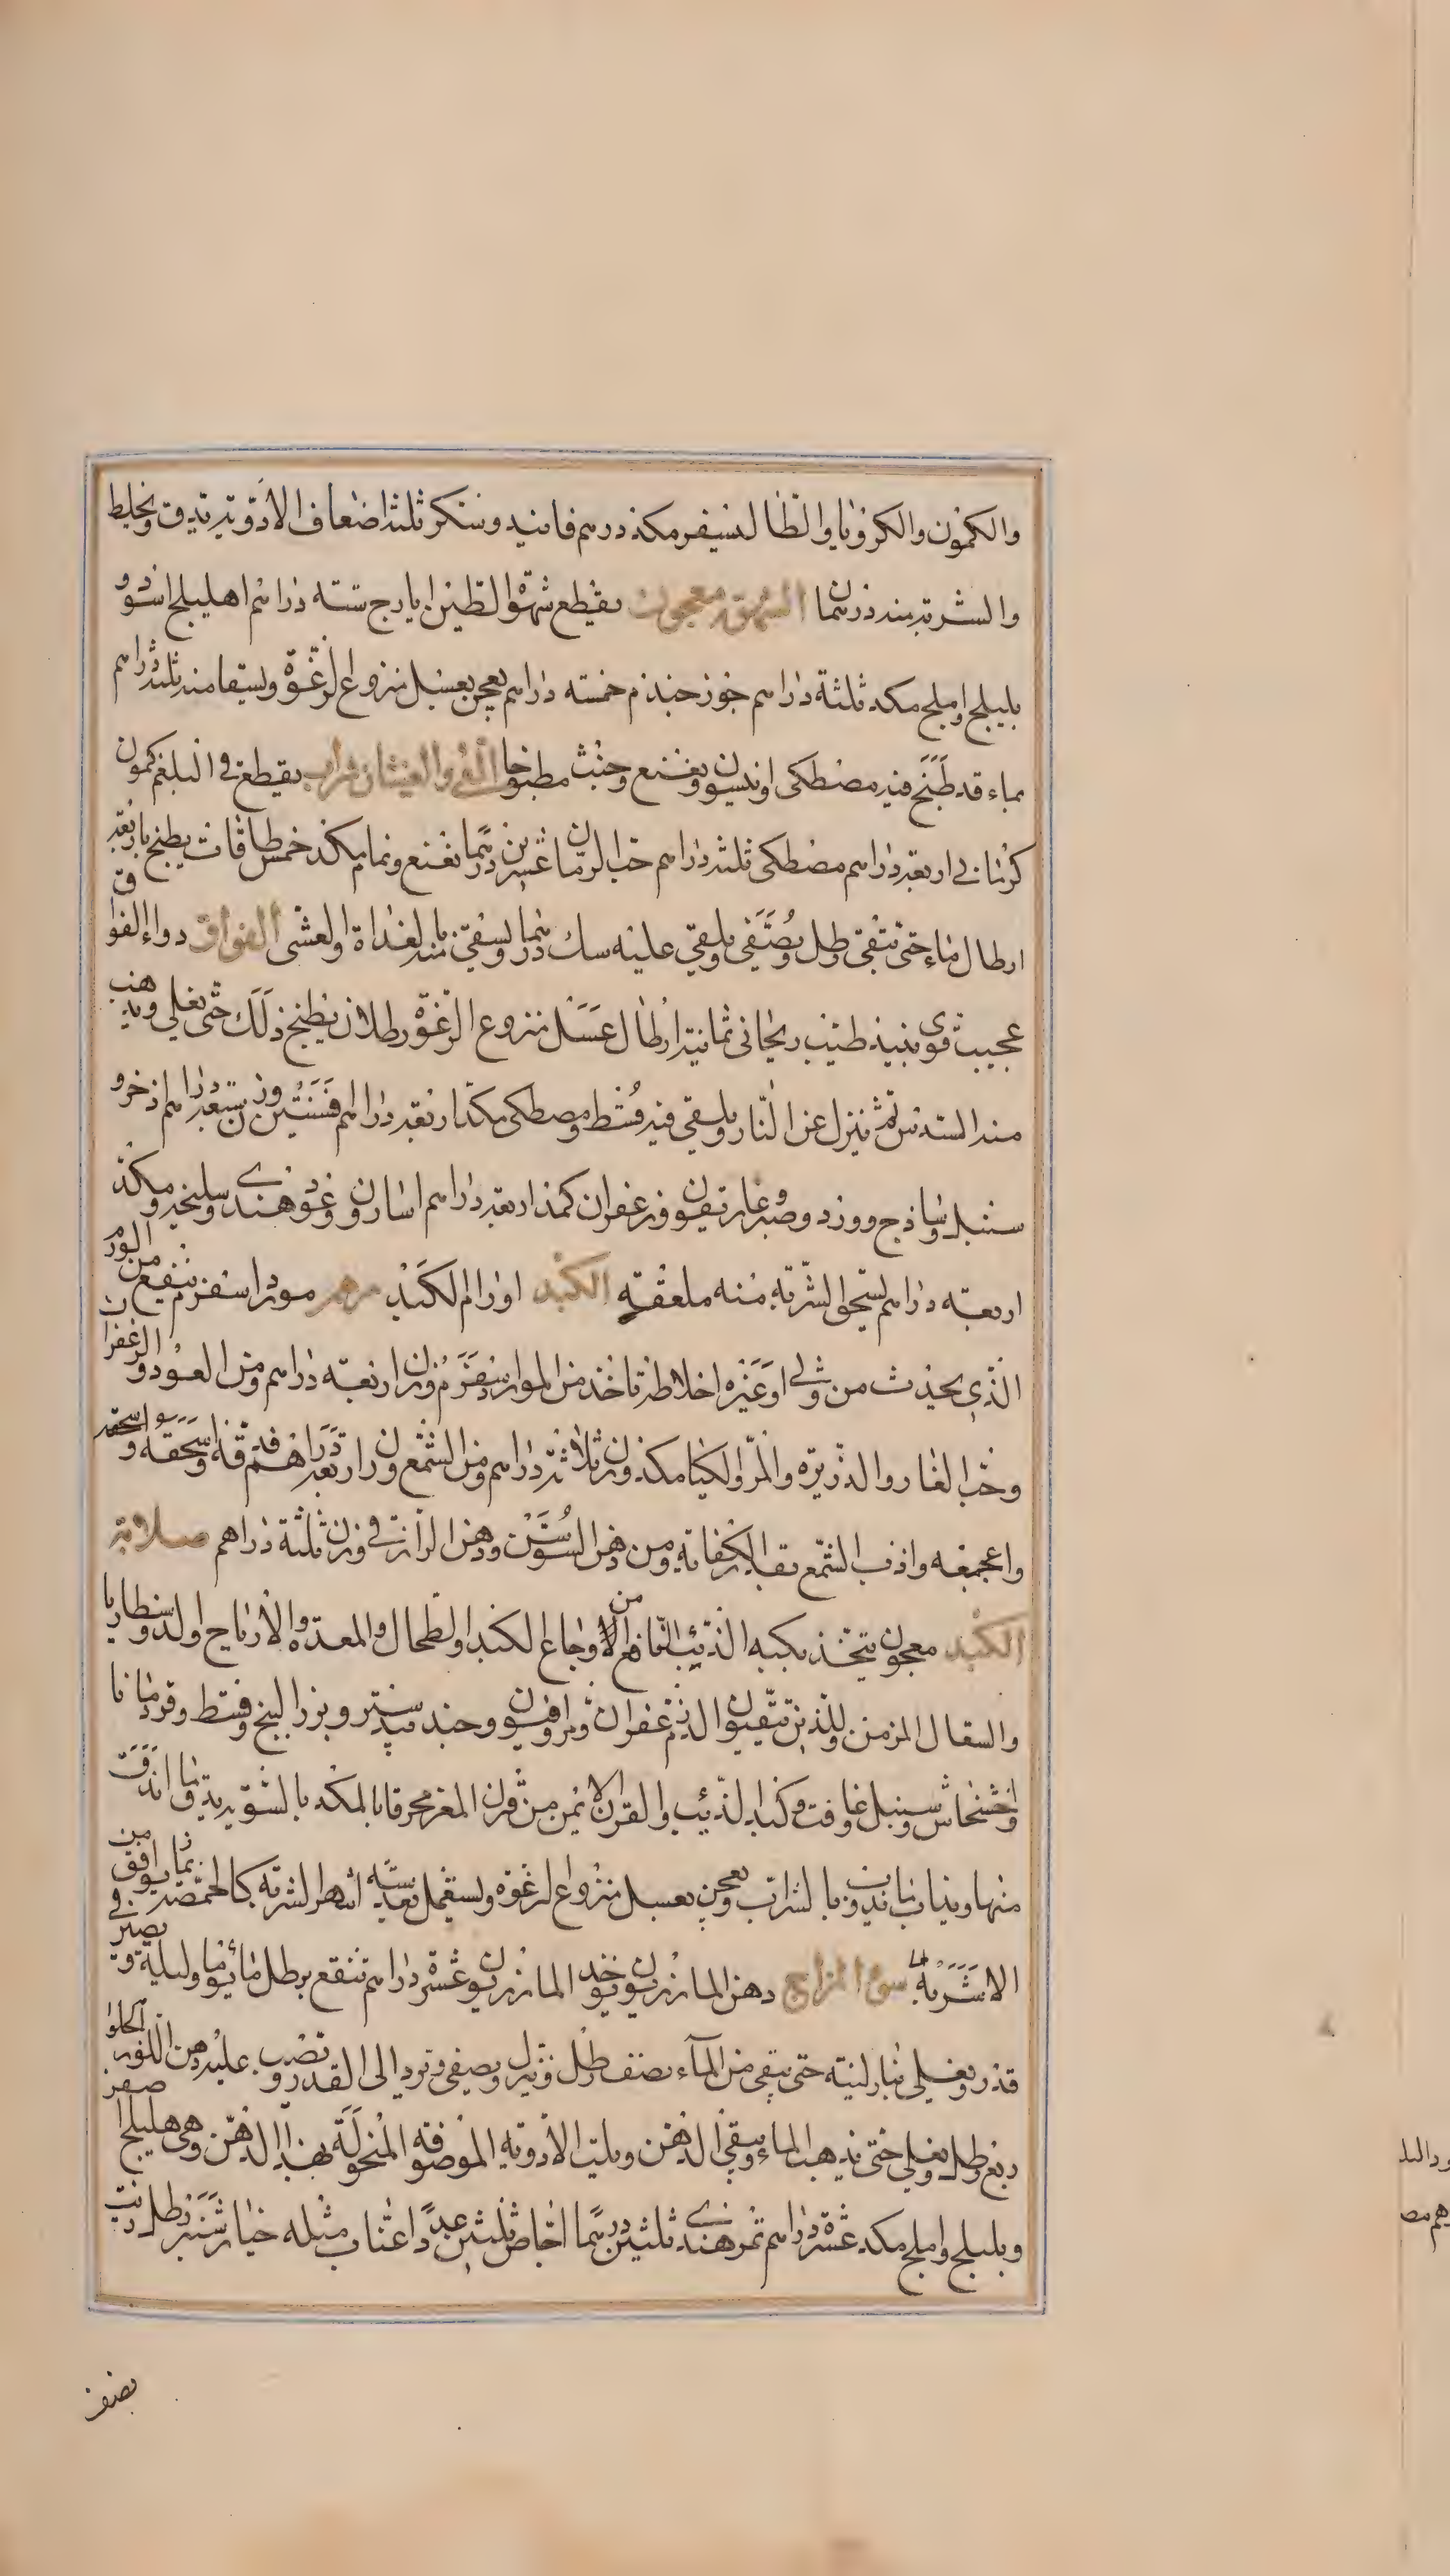 والكمون والكرويا والطاليسفر مكد درهم فانيد وسكر ثلثة اضعاف الادوية تدق وتخلط
والشربة منه درهمان الشهوة معجون يقطع شهوة الطين ايارج ستة دراهم اهليلج اسود و
بليلج واملج مكد ثلثة دراهم جوز جندم خمسة دراهم يعجن بعسل منزوع الرغوة ويسقا منه ثلثة دراهم
بماء قد طبخ فيه مصطكى وانيسون ونعنع مطبوخا القئ والغثيان شراب يقطع قئ البلغم كمون
كرماني اربعة دراهم مصطكى ثلثة دراهم حب الرمان عشرين درهما نعنع ونمام مكد خمس طاقات يطبخ باربعة
ارطال ماء حتى تبقى رطل ويصفى ويلقى عليه سك درهما ويسقى منه بالغداة والعشى الفواق دواء الفواق
عجيب قوى نبيذ طيب ريحانى ثمانية ارطال عسل منزوع الرغوة رطلان يطبخ ذلك حتى يغلي ويذهب
منه السدس ثم ينزل عن النار ويلقى فيه قسط ومصطكى مكد اربعة دراهم افسنتين وزن سبعة دراهم اذخر و
سنبل وساذج وورد وصبر وغاريقون وزعفران كمد اربعة دراهم اسارون وعود هندي وسليخة مكد
اربعة دراهم تسحق الشربة منه ملعقة الكبد اورام الكبد مرهم مورد اسفرم ينفع من الورم
الذي يحدث من وثي او غيره اخلاطه تاخذ من الموارد سفرم وزن اربعة دراهم ومن العود والزعفران
وحب الغار والذريرة والمر والكيا مكد وزن ثلاثة دراهم ومن الشمع وزن اربعة دراهم فدقه واسحقه
واعجمعه واذب الشمع بقدر الكفاية ومن دهن السوسن ودهن الرازقي وزن ثلثة دراهم صلابة
الكبد معجون يتخذ بكبد الذئب النافع من الاوجاع الكبد والطحال والمعدة والارياح والدوسنطاريا
والسعال المزمن وللذين يتقيون الدم زعفران ومر وافيون وجندبيدستر وبزر البنج وقسط وقردمانا
وخشخاش وسنبل وغافت وكبد الذئب والقرن الايمن من قرن المعز محرقا بالمكد بالسوية يدق ما اندق
منها ويذاب ما يذوب بالشراب ويعجن بعسل منزوع الرغوة ويستعمل بعد ستة اشهر الشربة كالحمصة بما يوافق من
الاشربة سوء المزاج دهن المازريون يوخذ المازريون عشرة دراهم تنقع برطل ماء يوما وليلة ويصير في
قدر ويغلى بنار لينة حتى يبقى من الماء نصف رطل وينزل ويصفى ويرد الى القدر ويصب عليه دهن اللوز الحلو
ربع رطل ويغلى حتى يذهب الماء ويبقى الدهن ويلت الادوية الموصوفة المنخولة بهذا الدهن وهى هليلج اصفر
وبليلج واملج مكد عشرة دراهم تمر هندي ثلثين درهما اجاص ثلثين عددا عناب مثله خيار شنبر رطل
نصف